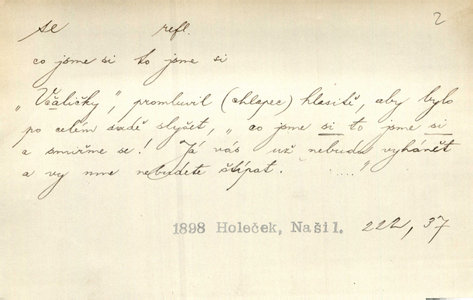 se refl. 2
co jsme si to jsme si
„Včeličky", promluvil (chlapec) hlasitě, aby bylo
po celém sadě slyšet, „co jsme si to jsme si
a smiřme se! Já vás už nebudu vyhánět
a vy mne nebudete štípat. ....."
1898 Holeček, Naši 1. 222, 37